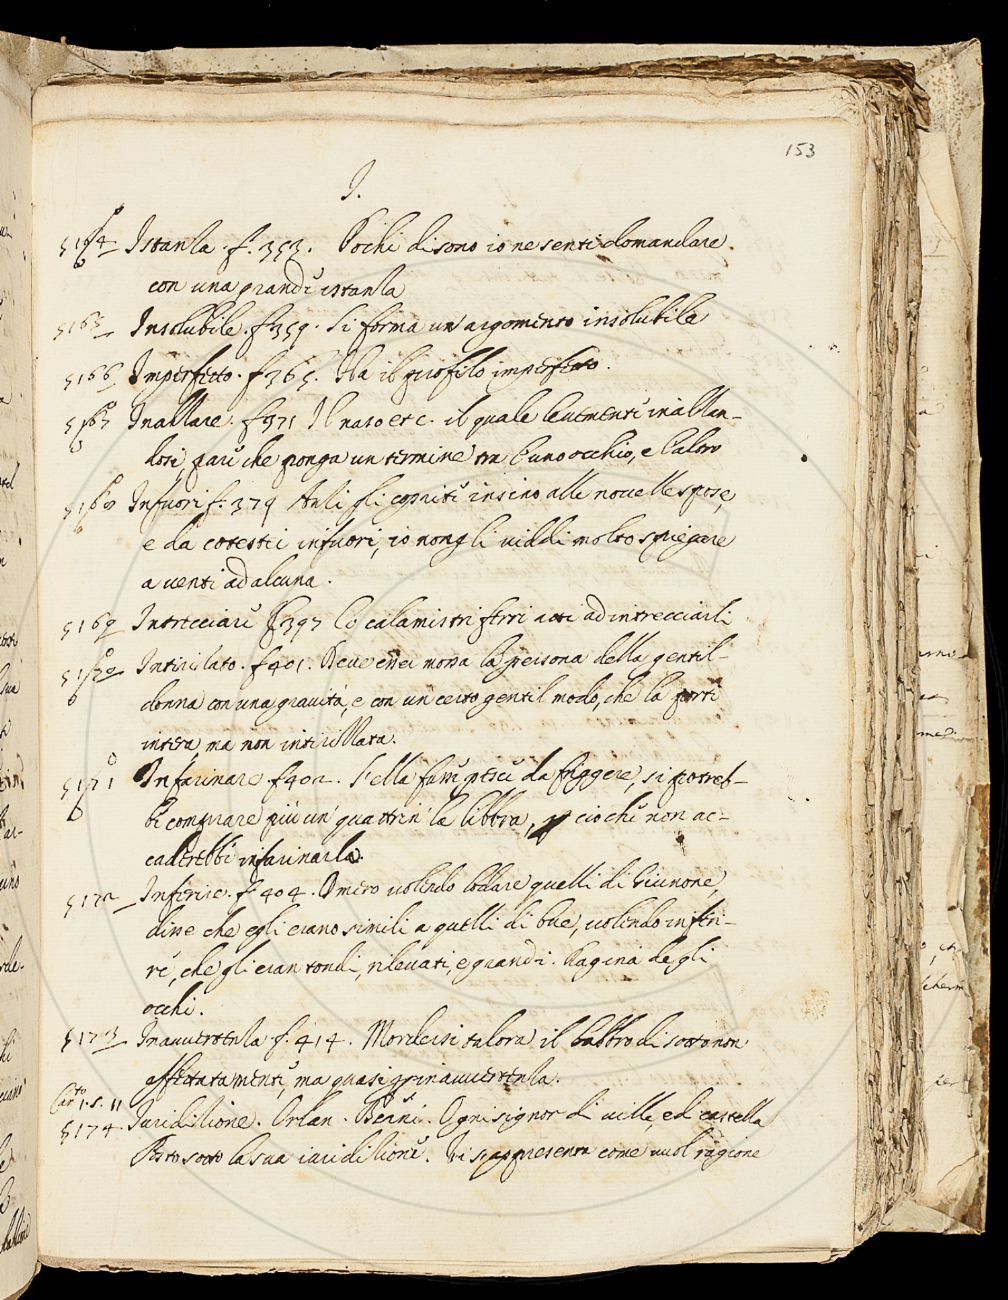 153
I.
5164 Istanza. f. 353. Pochi di sono io ne senti domandare
con una grande istanza
5165 Insolubile. f 359. Si forma un argomento insolubile
5166 Imperfetto. f 365. Ha il profilo imperfetto.
5167 Inalzare. f 371 Il naso etc. il quale levemente inalzan-
dosi, pare che ponga un termine tra l'uno occhio, e l'altro
5168 Infuori f. 379 insino alle novelle spose,
e da cotesti infuori, io non gli viddi molto spiegare
a venti ad alcuna.
5169 Intrecciare f 397 li calamistri ferri atti ad intrecciarli
5170 Intirilato. f 401. Deve essi mossa la persona della gentil-
donna con una gravità, e con un certo gentil modo, che la porti
intera, ma non intirizzata.
5171 Infarinare. f 402. S'ella fusse pesce da friggere, si potreb-
be comprare più un quattrin la libbra, p ciò che non ac-
caderebbe infarinarla.
5172 Inferire. f. 404. Omero volendo lodare quelli di Giunone,
disse che egli erano simili a quelli di bue, volendo inferi-
re, che gli eran tondi, rilevati, e grandi. Ragina degli
occhi.
5173 Inavvertenza f. 414. Mordersi talora il labbro di sotto non
affettatamente, ma quasi per inavvertenza.
Canto 1. S. 11
5174 Iuridizione. Orlan. Berni. Ogni signor di ville, e di castella
Posto sotto la sua iuridizione. Vi si appresenta come vuol ragione